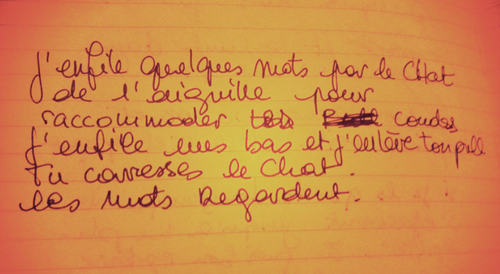 J'enfile quelques mots par le Chat
de l'aiguille pour
raccommoder coudes
J'enfile mes bas et j'enlève ton pull
Tu caresses le Chat.
Les mots Regardent.